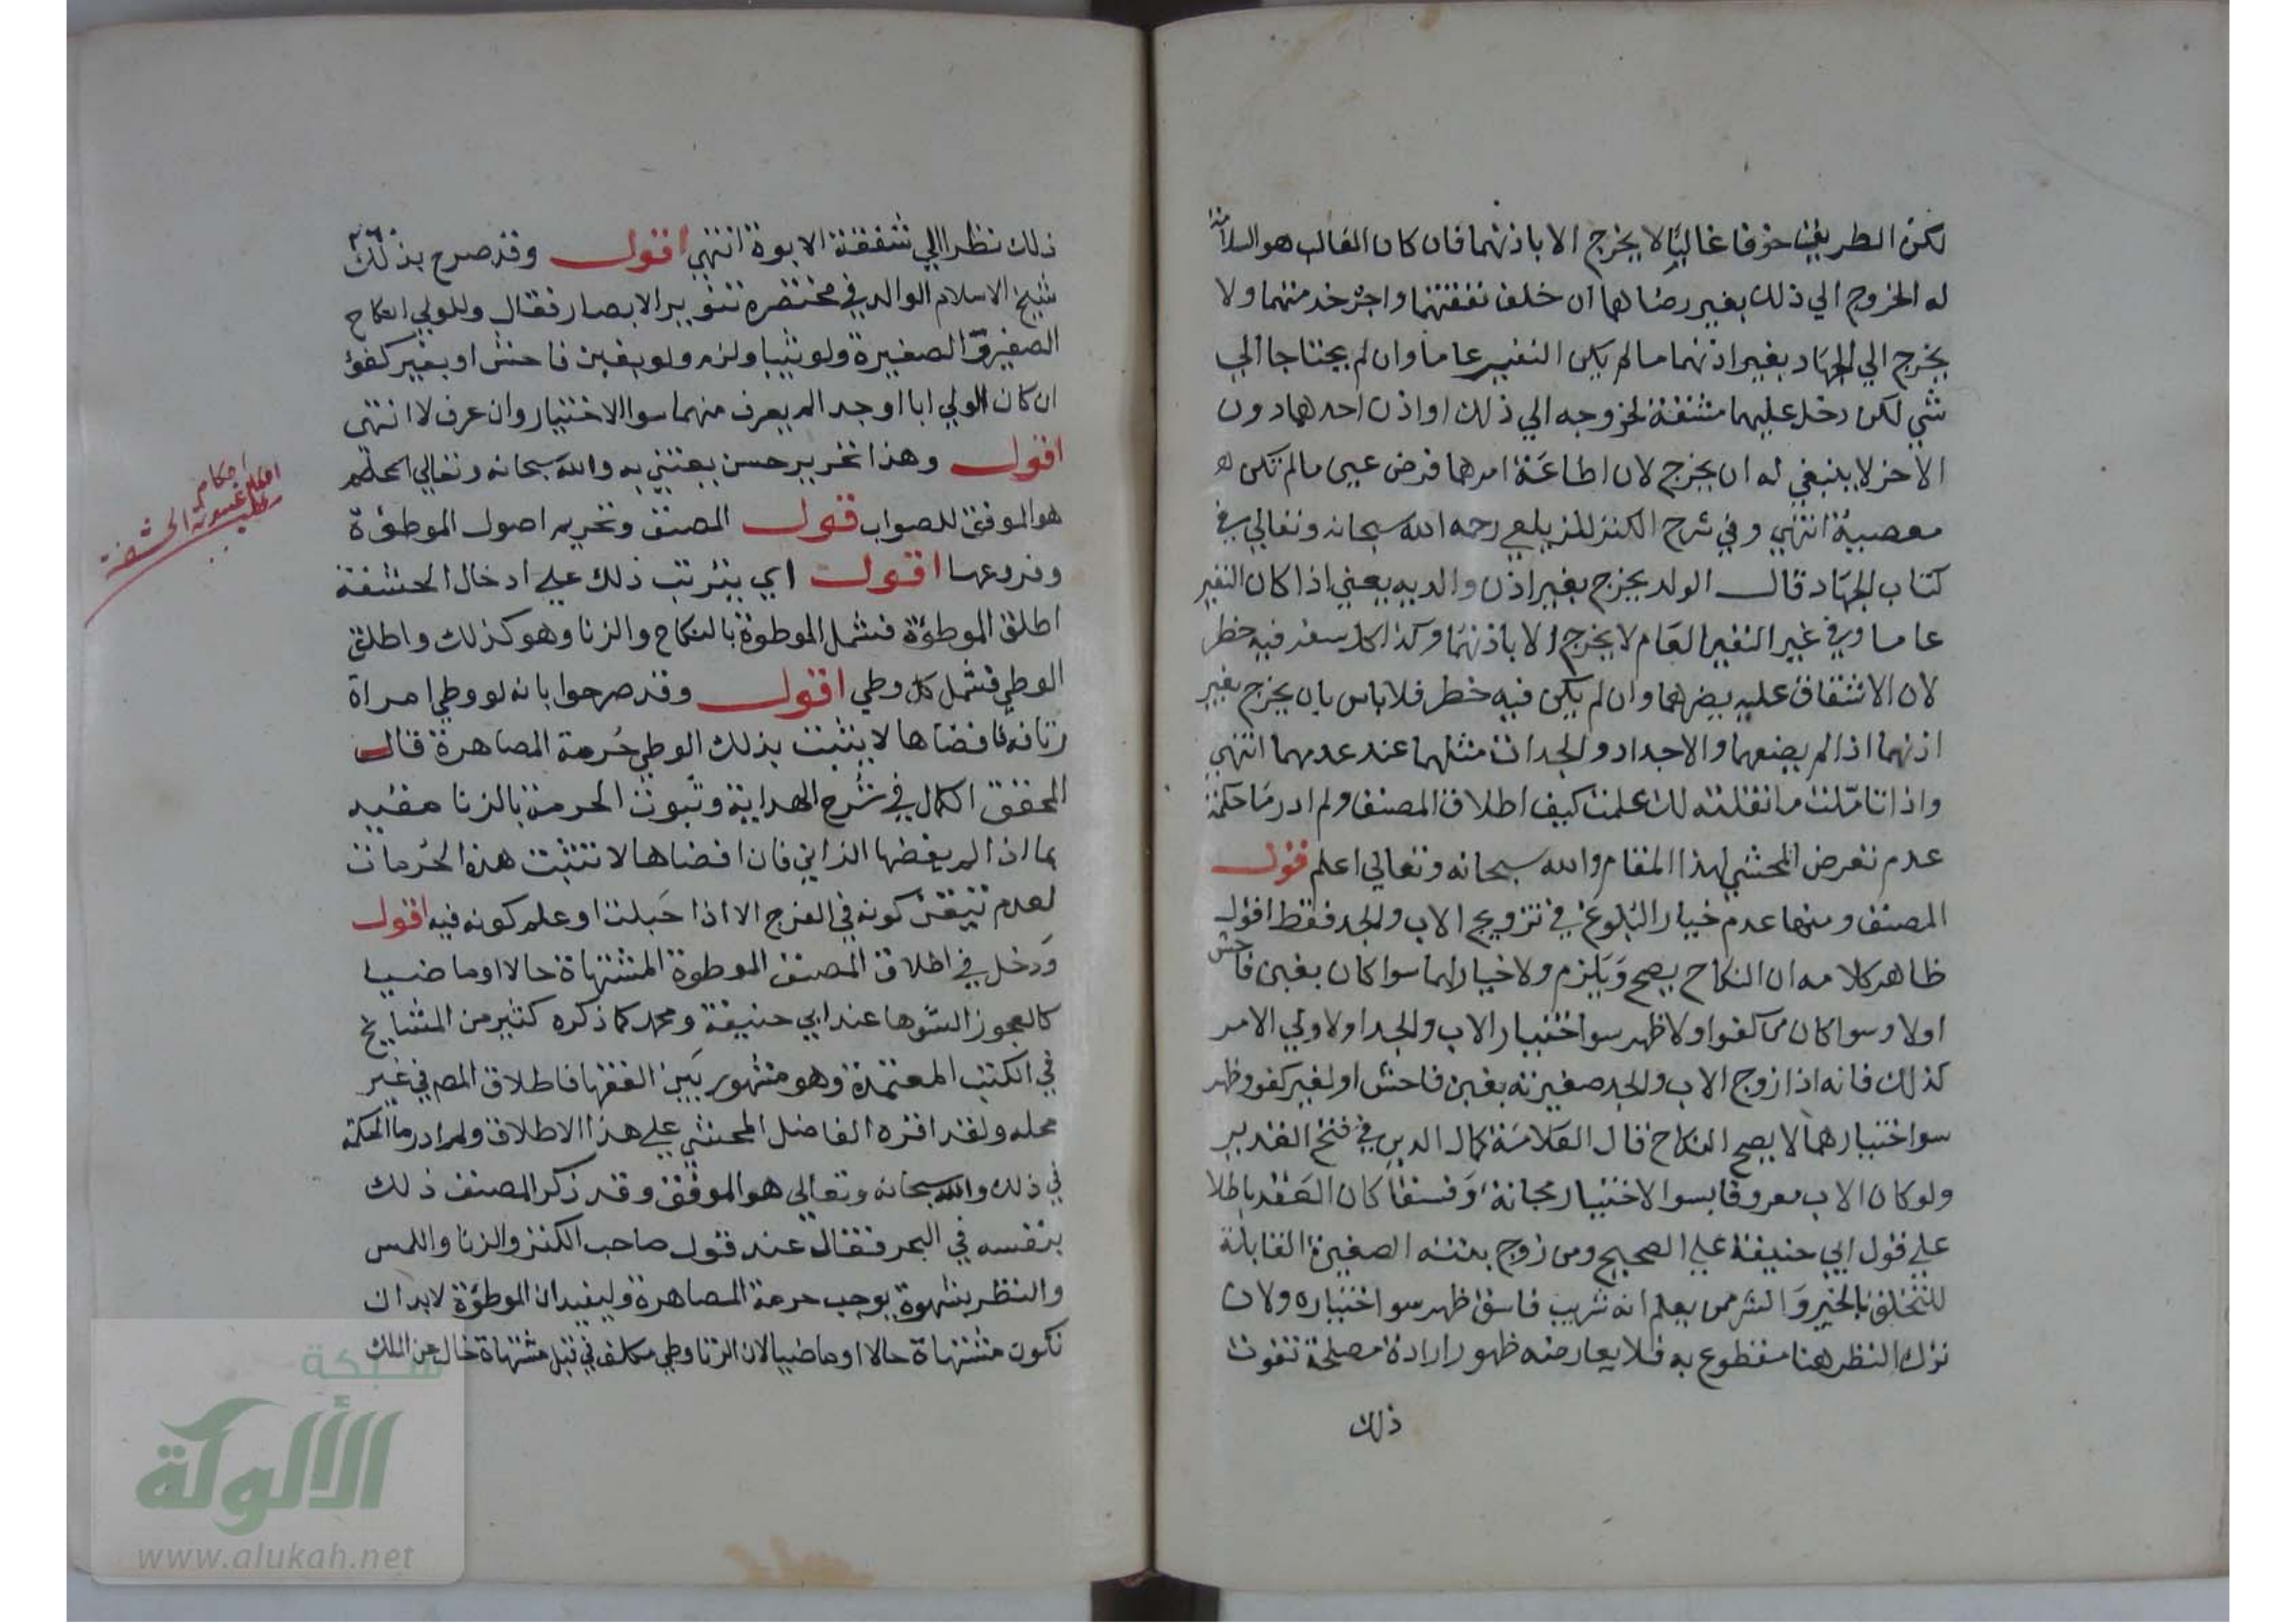 لكن الطريق خوفا غاليا لا يخرج الا باذنهما فان كان الغالب هو السلامة
له الخروج الي ذلك بغير رضاهما ان خلف نفقتهما واجر خدمتهما ولا
يخرج الي الجهاد بغير اذنهما ما لم يكن النفير عاما وان لم يحتاجا الي
شي لكن دخل عليهما مشقة لخروجه الي ذلك او اذن احدهما دون
الاخر لا ينبغي له ان يخرج لان اطاعة امرهما فرض عين ما لم تكن
معصية انتهي وفي شرح الكنز للزيلعي رحمه الله سبحانه وتعالي في
كتاب الجهاد قال الولد يخرج بغير اذن والديه يعني اذا كان النفير
عاما وفي غير النفير العام لا يخرج الا باذنهما وكذا كل سفر فيه خطر
لان الاشفاق عليه يضرهما وان لم يكن فيه خطر فلا باس بان يخرج بغير
اذنهما اذا لم يضيعهما والاجداد والجدات مثلهما عند عدمهما انتهي
واذا تاملت ما نقلته لك علمت كيف اطلاق المصنف ولم ادر ما حكمة
عدم تعرض المحشي لهذا المقام والله سبحانه وتعالي اعلم قول
المصنف ومنها عدم خيار البلوغ في تزويج الاب والجد فقط اقول
ظاهر كلامه ان النكاح يصح ويلزم ولا خيار لهما سوا كان بغبن فاحش
اولا وسوا كان من كفوا ولا ظهر سوا اختيار الاب والجد اولا ولي الامر
كذلك فانه اذا زوج الاب والجد صغيرته بغبن فاحش او لغير كفو وظهر
سوا اختيارهما لا يصح النكاح قال العلامة كمال الدين في فتح القدير
ولو كان الاب معروفا بسوا الاختيار مجانة وفسقا كان العقد باطلا
علي قول ابي حنيفة علي الصحيح ومن زوج بنته الصغيرة القابلة
للتخلق بالخير والشر ممن يعلم انه شريب فاسق ظهر سوا اختياره ولان
ترك النظر هنا مقطوع به فلا يعارضه ظهور ارادة مصلحة تفوت
ذلك
ذلك نظرا الي شفقة الابوة انتهي اقول وقد صرح بذلك
شيخ الاسلام الوالد في مختصره تنوير الابصار فقال وللولي انكاح
الصغير والصغيرة ولو ثيبا ولزم ولو بغبن فاحش او بغير كفؤ
ان كان الولي ابا او جدا لم يعرف منهما سوا الاختيار وان عرف لا انتهي
اقول وهذا تحرير حسن يعتني به والله سبحانه وتعالي اعلم
هو الموفق للصواب قول المصنف وتحريم اصول الموطؤة
وفروعها اقول اي يترتب ذلك علي ادخال الحشفة
اطلق الموطؤة فشمل الموطوة بالنكاح والزنا وهو كذلك واطلق
الوطي فشمل كل وطي اقول وقد صرحوا بانه لو وطي امراة
فافضاها لا يثبت بذلك الوطي حرمة المصاهرة قال
المحقق الكمال في شرح الهداية وثبوت الحرمة بالزنا مقيد
بما اذا لم يفضها الزاني فان افضاها لا تثبت هذه الحرمات
لعدم تيقن كونه في الفرج الا اذا حبلت او علم كونه فيه اقول
ودخل في اطلاق المصنف الموطوة المشتهاة حالا او ماضيا
كالعجوز الشوها عند ابي حنيفة ومحمد كما ذكره كثير من المشايخ
في الكتب المعتمدة وهو مشهور بين الفقها فاطلاق المص في غير
محله ولقد اقره الفاضل المحشي علي هذا الاطلاق ولم ادر ما الحكمة
في ذلك والله سبحانه وتعالي هو الموفق وقد ذكر المصنف ذلك
بنفسه في البحر فقال عند قول صاحب الكنز والزنا واللمس
والنظر بشهوة يوجب حرمة المصاهرة وليفيد ان الموطؤة لابد ان
تكون مشتهاة حالا او ماضيا لان الزنا وطي مكلف في قبل مشتهاة خال عن الملك
احكام
غيبوبة الحشفة
شبكة
الألوكة
www.alukah.net